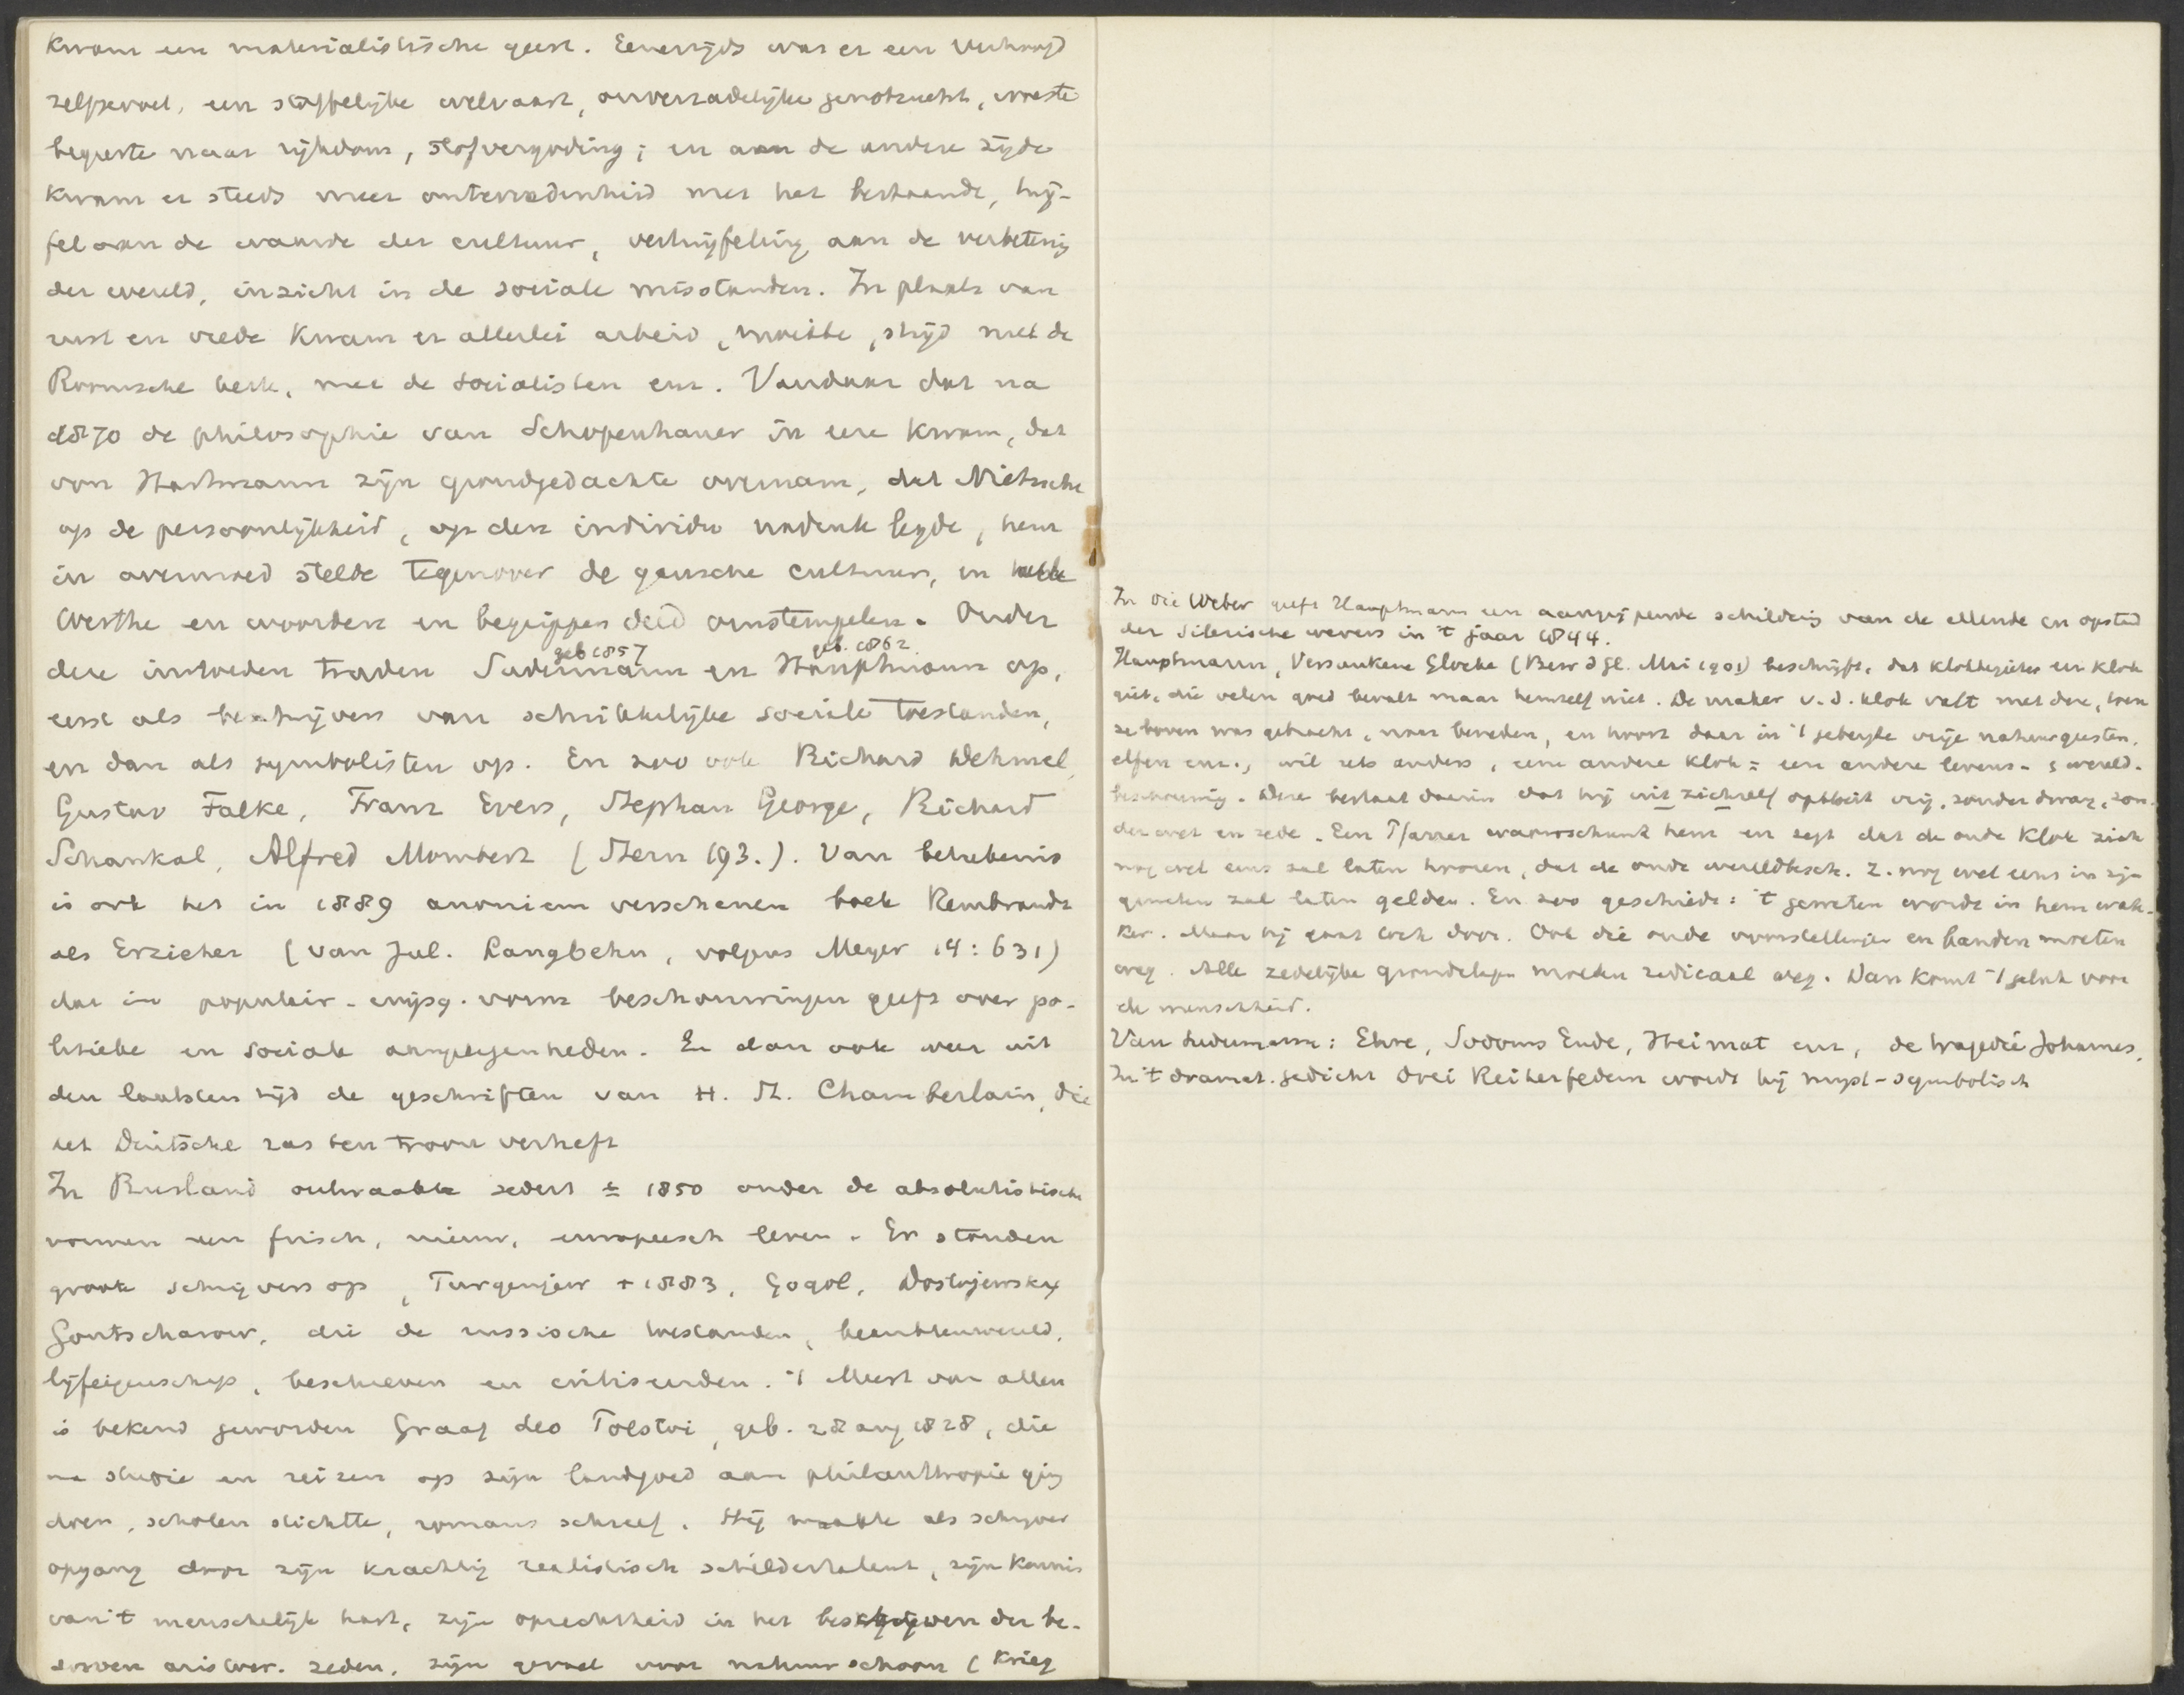 kwam een materialistische geest. Eenerzijds was er een verhoogd
zelfgevoel, een stoffelijke welvaart, onverzadelijke genotzucht, woeste
begeerte naar rijkdom, stofvergoding; en aan de andere zijde
kwam er steeds meer ontevredenheid met het bestaande, twij-
fel aan de waarde der cultuur, vertwijfeling aan de verbetering
der wereld, inzicht in de sociale misstanden. In plaats van
rust en vrede kwam er allerlei arbeid, moeite, strijd met de
Roomsche kerk, met de socialisten enz. Vandaar dat na
1870 de philosophie van Schopenhauer in eere kwam, dat
von Hartmann zijn grondgedachte overnam, dat Nietzsche
op de persoonlijkheid, op den individu nadruk legde, hem
in overmoed stelde tegenover de gansche cultuur, en
Werthe en woorden en begrippen deed omstempelen. Onder
geb 1857 geb. 1862
deze invloeden traden Sudermann en Hauptmann op,
eerst als beschrijvers van schrikkelijke sociale toestanden,
en dan als symbolisten op. En zoo ook Richard Dehmel,
Gustav Falke, Franz Evers, Stephan George, Richard
Schaukal, Alfred Mombert (Stern 193.). Van beteekenis
is ook het in 1889 anoniem verschenen boek Rembrandt
als Erzieher (van Jul. Langbehn, volgens Meyer 14:631)
dat in populair-wijsg. vorm beschouwingen geeft over po-
litieke en sociale aangelegenheden. En dan ook weer uit
den laatsten tijd de geschriften van H. St. Chamberlain, die
het Duitsche ras ten troon verheft
In Rusland ontwaakte sedert ± 1850 onder de absolutistische
vormen een frisch, nieuw, europeesch leven. Er stonden
groote schrijvers op, Turgenjew † 1883, Gogol, Dostojewsky
Gontscharow, die de russische toestanden, beambtenwereld,
lijfeigenschap, beschreven en critiseerden. 't Meest van allen
is bekend geworden Graaf Leo Tolstoi, geb. 28 aug 1828, die
na studie en reizen op zijn landgoed aan philanthropie ging
doen, scholen stichtte, romans schreef. Hij maakte als schrijver
opgang door zijn krachtig realistisch schildertalent, zijn kennis
van 't menschelijk hart, zijn oprechtheid in het beschrijven der be-
dorven aristocr. zeden, zijn gevoel voor natuurschoon (Krieg
In Die Weber geeft Hauptmann een aangrijpende schildering van de ellende en opstand
der Silezische wevers in 't jaar 1844.
Hauptmann, Versunkene Glocke (Bew d Gl. Mei 1901) beschrijft, dat klokkegieter een klok
giet, die velen goed bevalt maar hemzelf niet. De maker v.d. klok valt met deze, toen
ze boven was gebracht, naar beneden, en hoort daar in 't gebergte vrije natuurgeesten,
elfen enz., wil iets anders, eene andere klok = eene andere levens- & wereld-
beschouwing. Deze bestaat daarin dat hij uit zichzelf opbloeit vrij, zonder dwang, zon-
der wet en zede. Een Pfarrer waarschuwt hem en zegt dat de oude klok zich
nog wel eens zal laten hooren, dat de oude wereldbesch. z. nog wel eens in zijn
geweten zal laten gelden. En zoo geschiedt: 't geweten wordt in hem wak-
ker. Maar hij gaat toch door. Ook die oude voorstellingen en banden moeten
weg. Alle zedelijke grondslagen moeten radicaal weg. Dan komt 't geluk voor
de menschheid.
Van Sudermann: Ehre, Sodoms Ende, Heimat enz, de tragedie Johannes,
In 't dramat. gedicht Drei Reiherfedern wordt hij myst-symbolisch